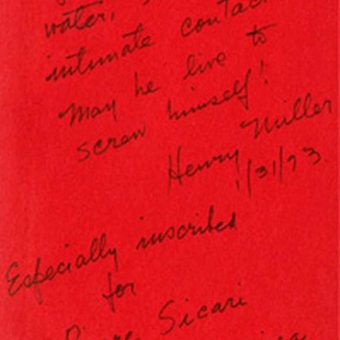 water,
intimate contact
May he live to
screw himself!
Henry Miller
1/31/73
Especially inscribed
for
Sicari